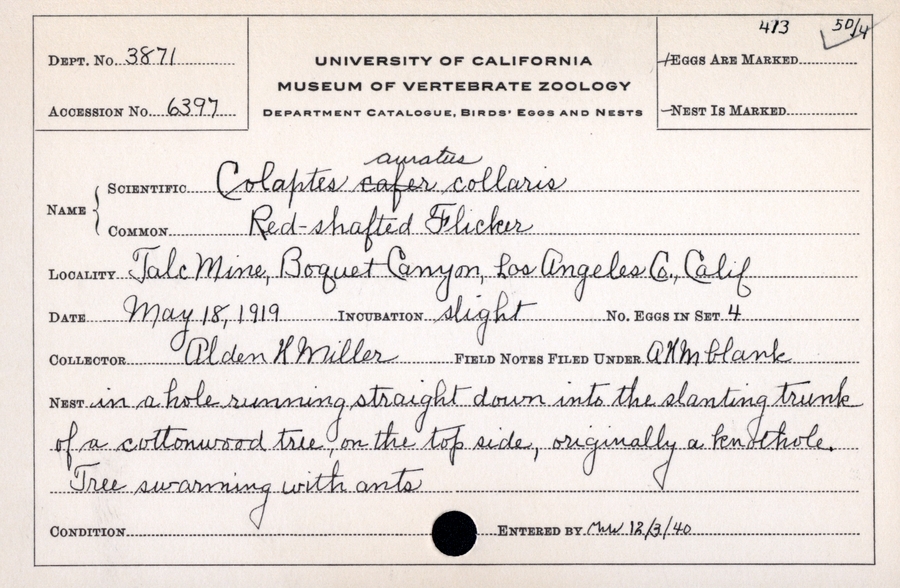 413 50/4
DEPT. No. 3871
UNIVERSITY OF CALIFORNIA
EGGS ARE MARKED
MUSEUM OF VERTEBRATE ZOOLOGY
ACCESSION No. 6397
DEPARTMENT CATALOGUE, BIRDS' EGGS AND NESTS
NEST IS MARKED
auratus
NAME { SCIENTIFIC Colaptes cafer collaris
COMMON Red-shafted Flicker
LOCALITY Talc Mine, Boquet Canyon, Los Angeles Co., Calif
DATE May 18, 1919 INCUBATION slight No. EGGS IN SET 4
COLLECTOR Alden H Miller FIELD NOTES FILED UNDER AHM blank
NEST in a hole running straight down into the slanting trunk
of a cottonwood tree, on the top side, originally a knothole.
Tree swarming with ants
CONDITION ENTERED BY 12/3/40